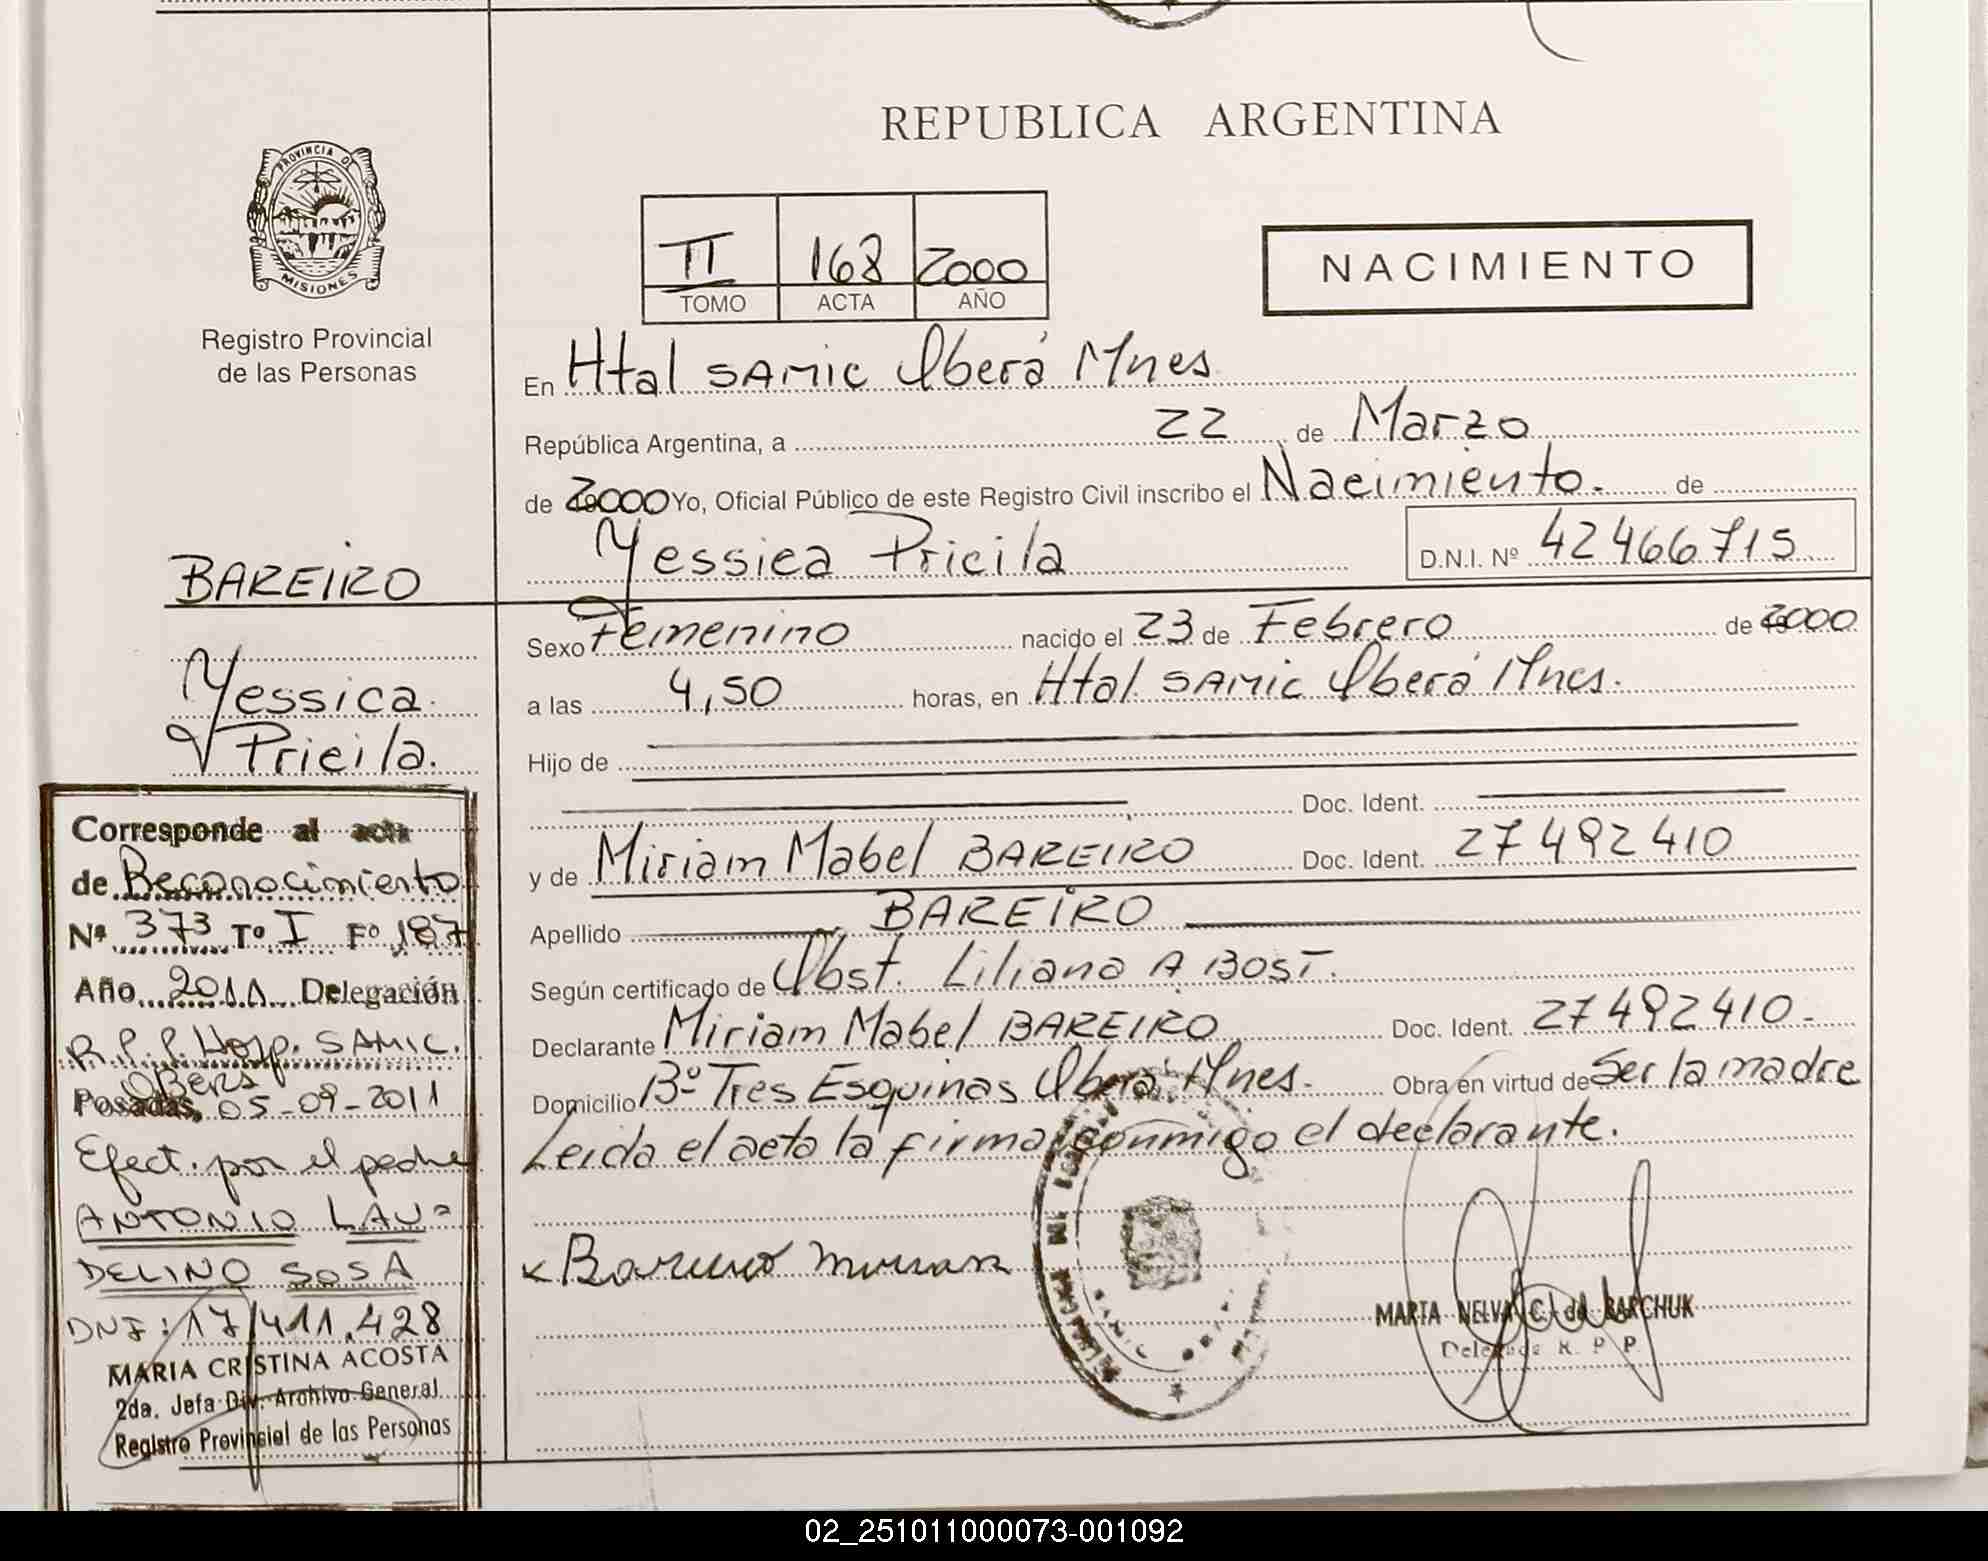 REPUBLICA ARGENTINA
PROVINCIA DE
MISIONES
Registro Provincial
de las Personas
II 168 2000
TOMO ACTA AÑO
NACIMIENTO
En Htal SAMIC Oberá Mnes
República Argentina, a 22 de Marzo
de 2000 Yo, Oficial Público de este Registro Civil inscribo el Nacimiento. de
Yessica Pricila D.N.I. Nº 42466715
Sexo Femenino nacido el 23 de Febrero de 2000
a las 4,50 horas, en Htal. SAMIC Oberá Mnes.
Hijo de
Doc. Ident.
y de Miriam Mabel BAREIRO Doc. Ident. 27492410
Apellido BAREIRO
Según certificado de Obst. Liliana A BOST.
Declarante Miriam Mabel BAREIRO Doc. Ident. 27492410.
Domicilio Bº Tres Esquinas Oberá Mnes. Obra en virtud de Ser la madre
Leida el acta la firma conmigo el declarante.
x Bareiro Miriam
MARTA NELVA C. de BARCHUK
Delegada R. P. P.
BAREIRO
Yessica
Pricila.
Corresponde al acta
de Reconocimiento
Nº 373 Tº I Fº 187
Año 2011 Delegación
R.P.P. Hosp. SAMIC.
OBERA
Posadas, 05-09-2011
Efect. por el padre
ANTONIO LAU=
DELINO SOSA
DNI: 17/411.428
MARIA CRISTINA ACOSTA
2da. Jefa Div. Archivo General
Registro Provincial de las Personas
02_251011000073-001092